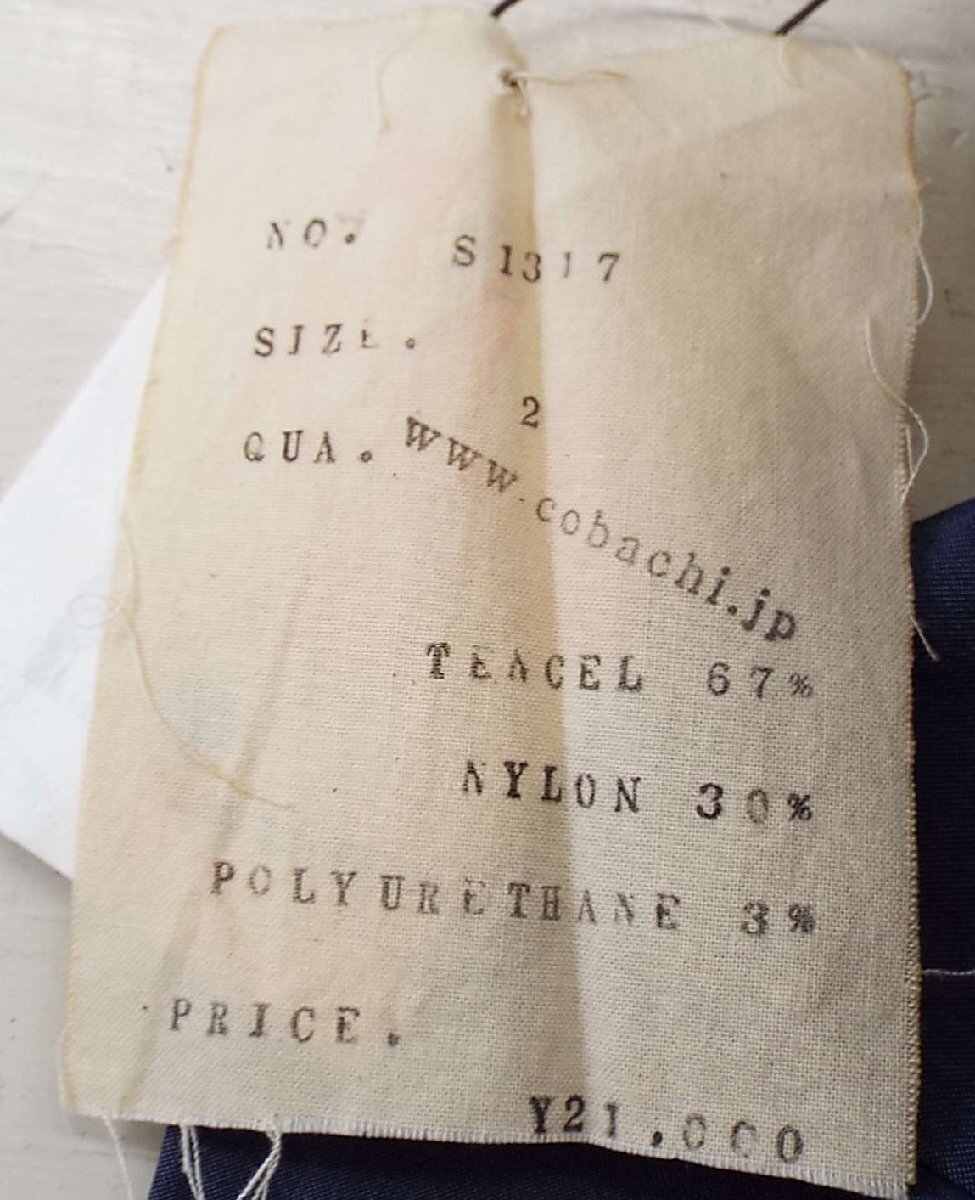 NO. S1317
SIZE.
2
QUA.
www.cobachi.jp
TENCEL 67%
NYLON 30%
POLYURETHANE 3%
PRICE.
Y21.000